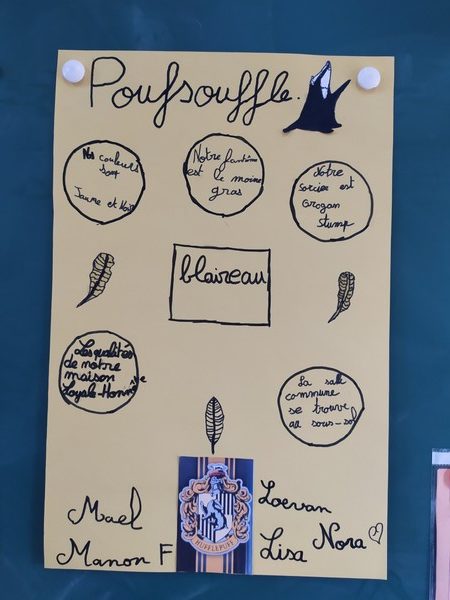 Poufsouffle.
Nos couleurs
sont
Jaune et Noir
Notre fantôme
est le moine
gras
Notre
sorcier est
Grogan
Stump
blaireau
Les qualités
de notre
maison
Loyale-Honnête
La salle
commune
se trouve
au sous-sol
HUFFLEPUFF
Mael
Manon F
Loevan
Nora
Lisa